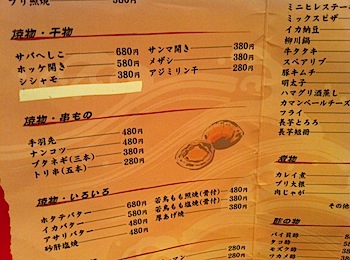 ブリ照焼 380円
焼物・干物
サバへしこ 680円
ホッケ開き 580円
シシャモ 380円
サンマ開き 380円
メザシ 380円
アジミリン干 280円
焼物・串もの
手羽先 480円
ナンコツ 480円
ブタネギ(三本) 380円
トリ串(五本) 280円
焼物・いろいろ
ホタテバター 680円
イカバター 580円
アサリバター 480円
砂肝塩焼 480円
若鳥もも照焼(骨付) 480円
若鳥もも塩焼(骨付) 380円
厚あげ焼 380円
280円
ミニヒレステー
ミックスピザ
イカ納豆
柳川鍋
牛タタキ
スペアリブ
豚キムチ
明太子
ハマグリ酒蒸し
カマンベールチーズ
フライ
長芋とろろ
長芋短冊
煮物
カレイ煮
ブリ大根
肉じゃが
その他
酢の物
バイ貝酢
タコ酢
モズク酢
ワカメ酢